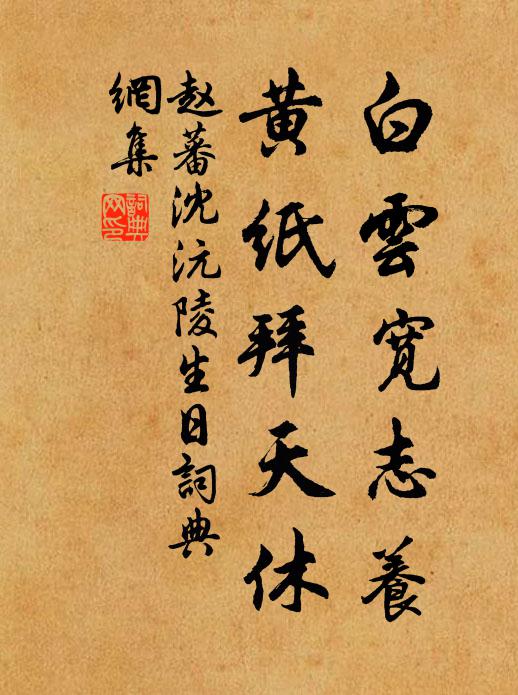 白雲寬志養
黃紙拜天休
赵蕃沈沅陵生日詞典
網集
詞典
网印